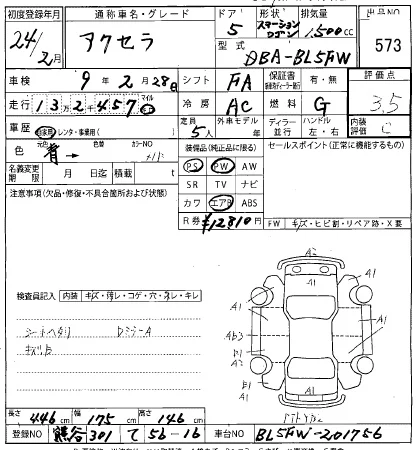 初度登録年月 通称車名・グレード ドア 形状 排気量 出品NO
24/2月 アクセラ 5 ステーションワゴン 1,500cc 573
型式 DBA-BL5FW
車検 9年2月28日 シフト FA 保証書 有・無 評価点
走行 132457 マイル km 冷房 AC 燃料 G 3.5
車歴 自家用・レンタ・事業用( ) 定員 5人 外車モデル 年 ディーラー 並行 ハンドル 左・右 内装評価 C
色 元色 青 → 色替 カラーNO 装備品(純正品に限る) セールスポイント(正常に機能するもの)
名義変更期限 月 日迄 積載 t PS PW AW
注意事項(欠品・修復・不具合箇所および状態) SR TV ナビ
カワ エアB ABS
R券 ¥12810円 FW キズ・ヒビ割・リペア跡・X要
A2
A1 A1
検査員記入 内装 キズ・汚レ・コゲ・穴・ヌレ・キレ
A1 A1
シートヘタリ DミラーA
キズ
A63 A1
B1 A1
B1 A1
長さ 446cm 幅 175cm 高さ 146cm
登録NO 熊谷 301 て 56-16 車台NO BL5FW-201756